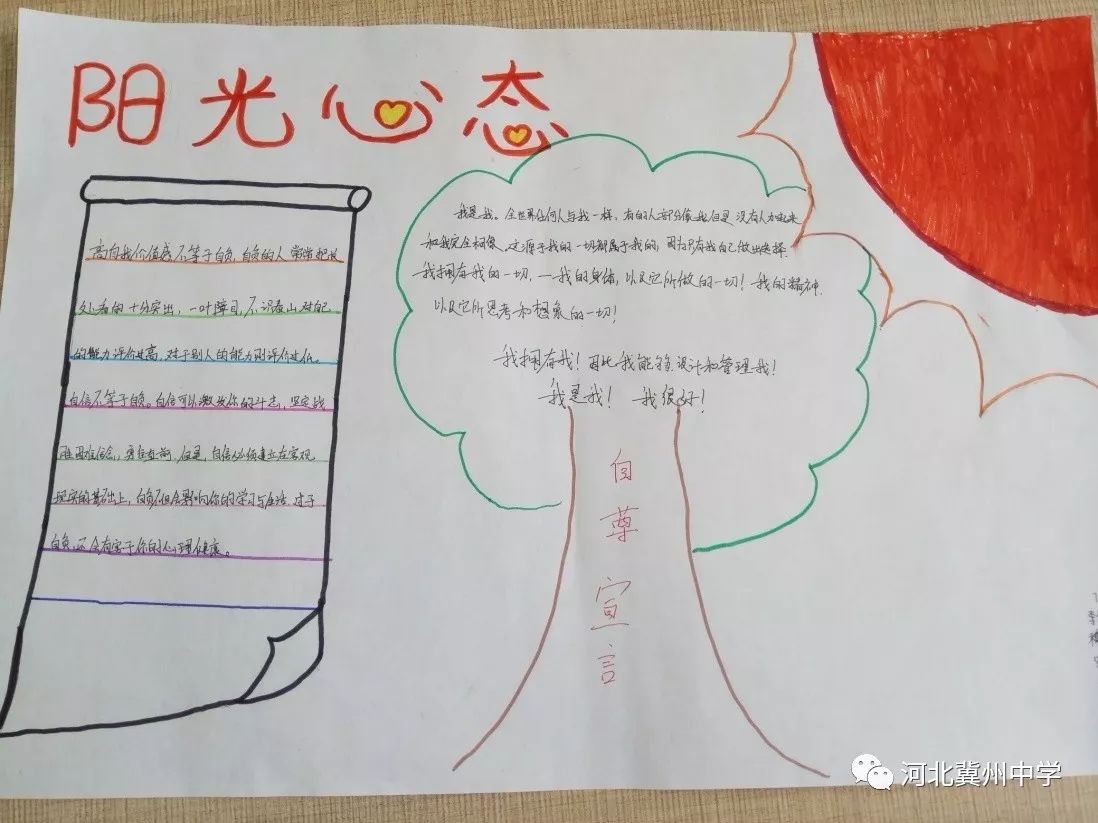 阳光心态
高自我价值感不等于自负,自负的人常常把长
处看的十分突出,一叶障目,不识泰山对自己
的能力评价过高,对于别人的能力则评价过低。
自信不等于自负。自信可以激发你的斗志,坚定战
胜困难信念,勇往直前,但是,自信必须建立在客观
现实的基础上,自负不但会影响你的学习与生活,过于
自负,还会有害于你的心理健康。
我是我。全世界任何人与我一样,有的人部分像我但是没有人加起来
和我完全相像,这源于我的一切都属于我的,因为只有我自己做出选择.
我拥有我的一切,一我的身体,以及它所做的一切!我的精神.
以及它所思考和想象的一切!
我拥有我!因此我能够设计和管理我!
我是我! 我很好!
自
尊
宣
言
河北冀州中学